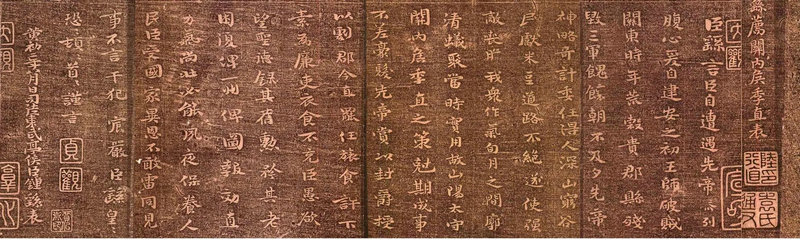 繇薦關內侯季直表
臣繇言臣自遭遇先帝忝列
腹心爰自建安之初王師破賊
關東時年荒穀貴郡縣殘
毀三軍餽饟朝不及夕先帝
神略奇計委任得人深山窮谷
民獻米豆道路不絕遂使強
敵喪膽我衆作氣旬月之間廓
清蟻聚當時實用故山陽太守
關內侯季直之策剋期成事
不差豪髮先帝賞以封爵授
以劇郡今直罷任旅食許下
素為廉吏衣食不充臣愚欲
望聖德錄其舊勳矜其老
困復俾一州俾圖報效直
力氣尚壯必能夙夜保養人
民臣受國家異恩不敢雷同見
事不言干犯宸嚴臣繇皇〻
恐〻頓首〻謹言
貞觀
黃初二年八月日司徒東武亭侯臣鍾繇表